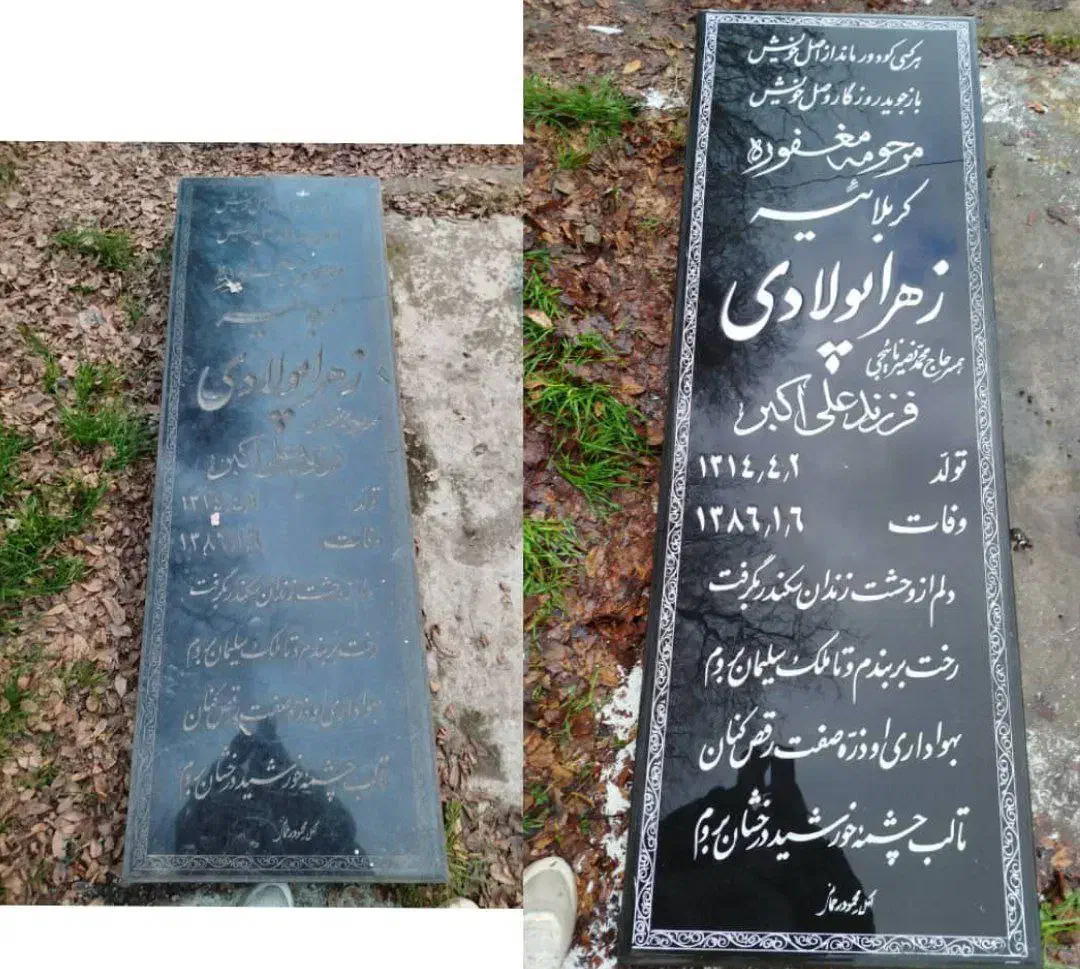 هر کسی کو دور ماند از اصل خویش
باز جوید روزگار وصل خویش
مرحومه مغفوره
کربلائیه
زهرا پولادی
همسر حاج محمد نصیر
فرزند علی اکبر
تولّد ۱۳۱٤,٤,۲
وفات ۱۳۸٦,۱,٦
دلم از وحشت زندان سکندر بگرفت
رخت بربندم و تا ملک سلیمان بروم
بهواداری او ذرّه صفت رقص کنان
تا لب چشمهٔ خورشید درخشان بروم
زهرا پولادی
فرزند علی اکبر
تولد
وفات ۱۳۸٦,۱,٦
دلم از وحشت زندان سکندر بگرفت
رخت بربندم و تا ملک سلیمان بروم
بهواداری او ذرّه صفت رقص کنان
تا لب چشمهٔ خورشید درخشان بروم